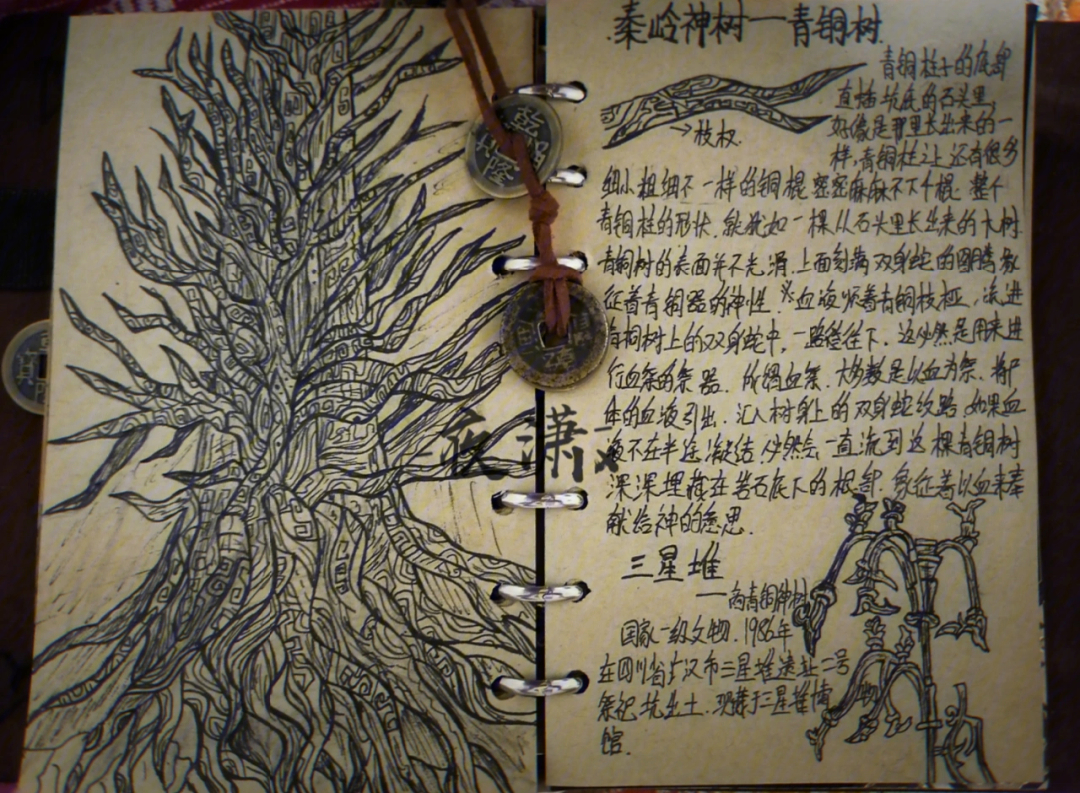 秦岭神树一青铜树
青铜柱子的底部
直插坑底的石头里
好像是那里长出来的一
→枝杈
样,青铜柱之上还有很多
细小粗细不一样的铜棍密密麻麻不下千棍 整个
青铜柱的形状,就犹如一棵从石头里长出来的大树
青铜树的表面并不光滑,上面刻满双身蛇的图腾象
征着青铜器的神性 ※血液顺着青铜枝桠,流进
青铜树上的双身蛇中,一路往下,这必然是用来进
行血祭的祭器,所谓血祭,大多数是以血为祭,将尸
体的血液引出,汇入树身上的双身蛇纹路,如果血
液不在半途凝结,必然会一直流到这棵青铜树
深深埋藏在岩石底下的根部,象征着以血来奉
献给神的意思.
三星堆
—商青铜神树
国家一级文物,1986年
在四川省广汉市三星堆遗址二号
祭祀坑出土,现藏于三星堆博
馆.
乾隆
潇